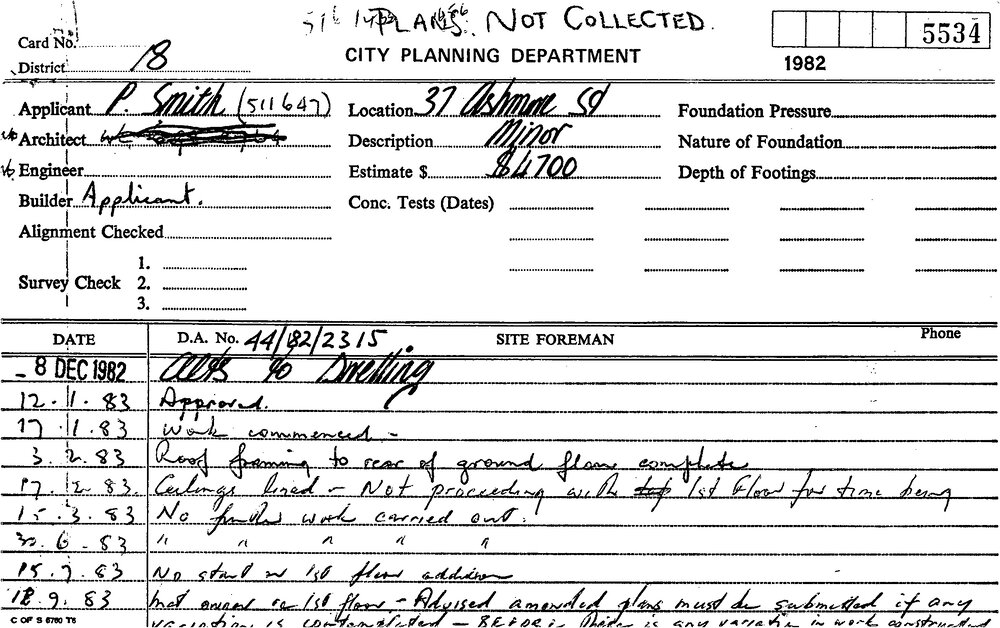 PLANS NOT COLLECTED.
Card No.
District 18
CITY PLANNING DEPARTMENT
5534
1982
Applicant P. Smith (511647)
Location 37 Ashmore St
Foundation Pressure
Architect
Description Minor
Nature of Foundation
Engineer
Estimate $ $4700
Depth of Footings
Builder Applicant.
Conc. Tests (Dates)
Alignment Checked
Survey Check
1.
2.
3.
DATE
D.A. No. 44/82/2315
SITE FOREMAN
Phone
- 8 DEC 1982 Alts to Dwelling
12.1.83 Approved.
17.1.83 Work commenced -
3.2.83 Roof framing to rear of ground floor complete
17.2.83. Ceilings lined - Not proceeding with 1st Floor for time being
15.3.83 No further work carried out.
30.6.83 " " " " "
15.7.83 No start on 1st floor addition
12.9.83 Met owner re 1st floor - Advised amended plans must be submitted if any
variation is contemplated - BEFORE is any variation in work constructed
C OF S 6760 T6